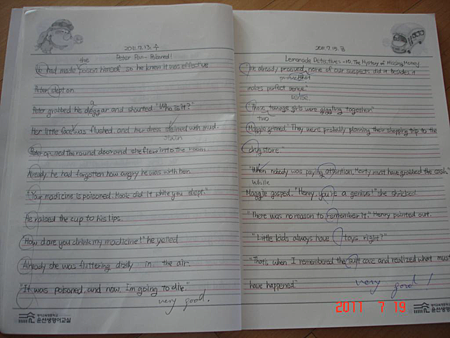 2011.7.13. 수
Peter Pan - Poisoned!
He had made poison himself. So he knew it was effective
Peter slept on.
Peter grabbed his daggar and shouted "Who is it?"
Her little face was flushed and her dress stained with mud.
Peter opened the round door and she flew into the room
Already he had forgotten how angry he was with her.
"Your medicine is poisoned. Hook did it while you slept."
He raised the cup to his lips.
How dare you drink my medicine!" he yelled
Already she was fluttering dizzily in the air.
"It was poisoned, and now I'm going to die."
very good.
윤선생영어교실
Lemonade Detectives - #4. The Mystery of Missing Money
He already none of our suspects did it besides it
makes perfect sense.
"Those teenage girls were giggling together."
too
Maggie grinned. They were probably planning their shopping trip to the
candy store."
"When nobody was paying attention, Merty must have grabbed the cash."
While
Maggie gasped. "Henry you're a genius!" she shrieked
"There was no reason to remember it." Henry pointed out.
"Little kids always have toys right?"
"That's when I remembered the and realized what must
have happened."
very good!
윤선생영어교실
2011 7 19